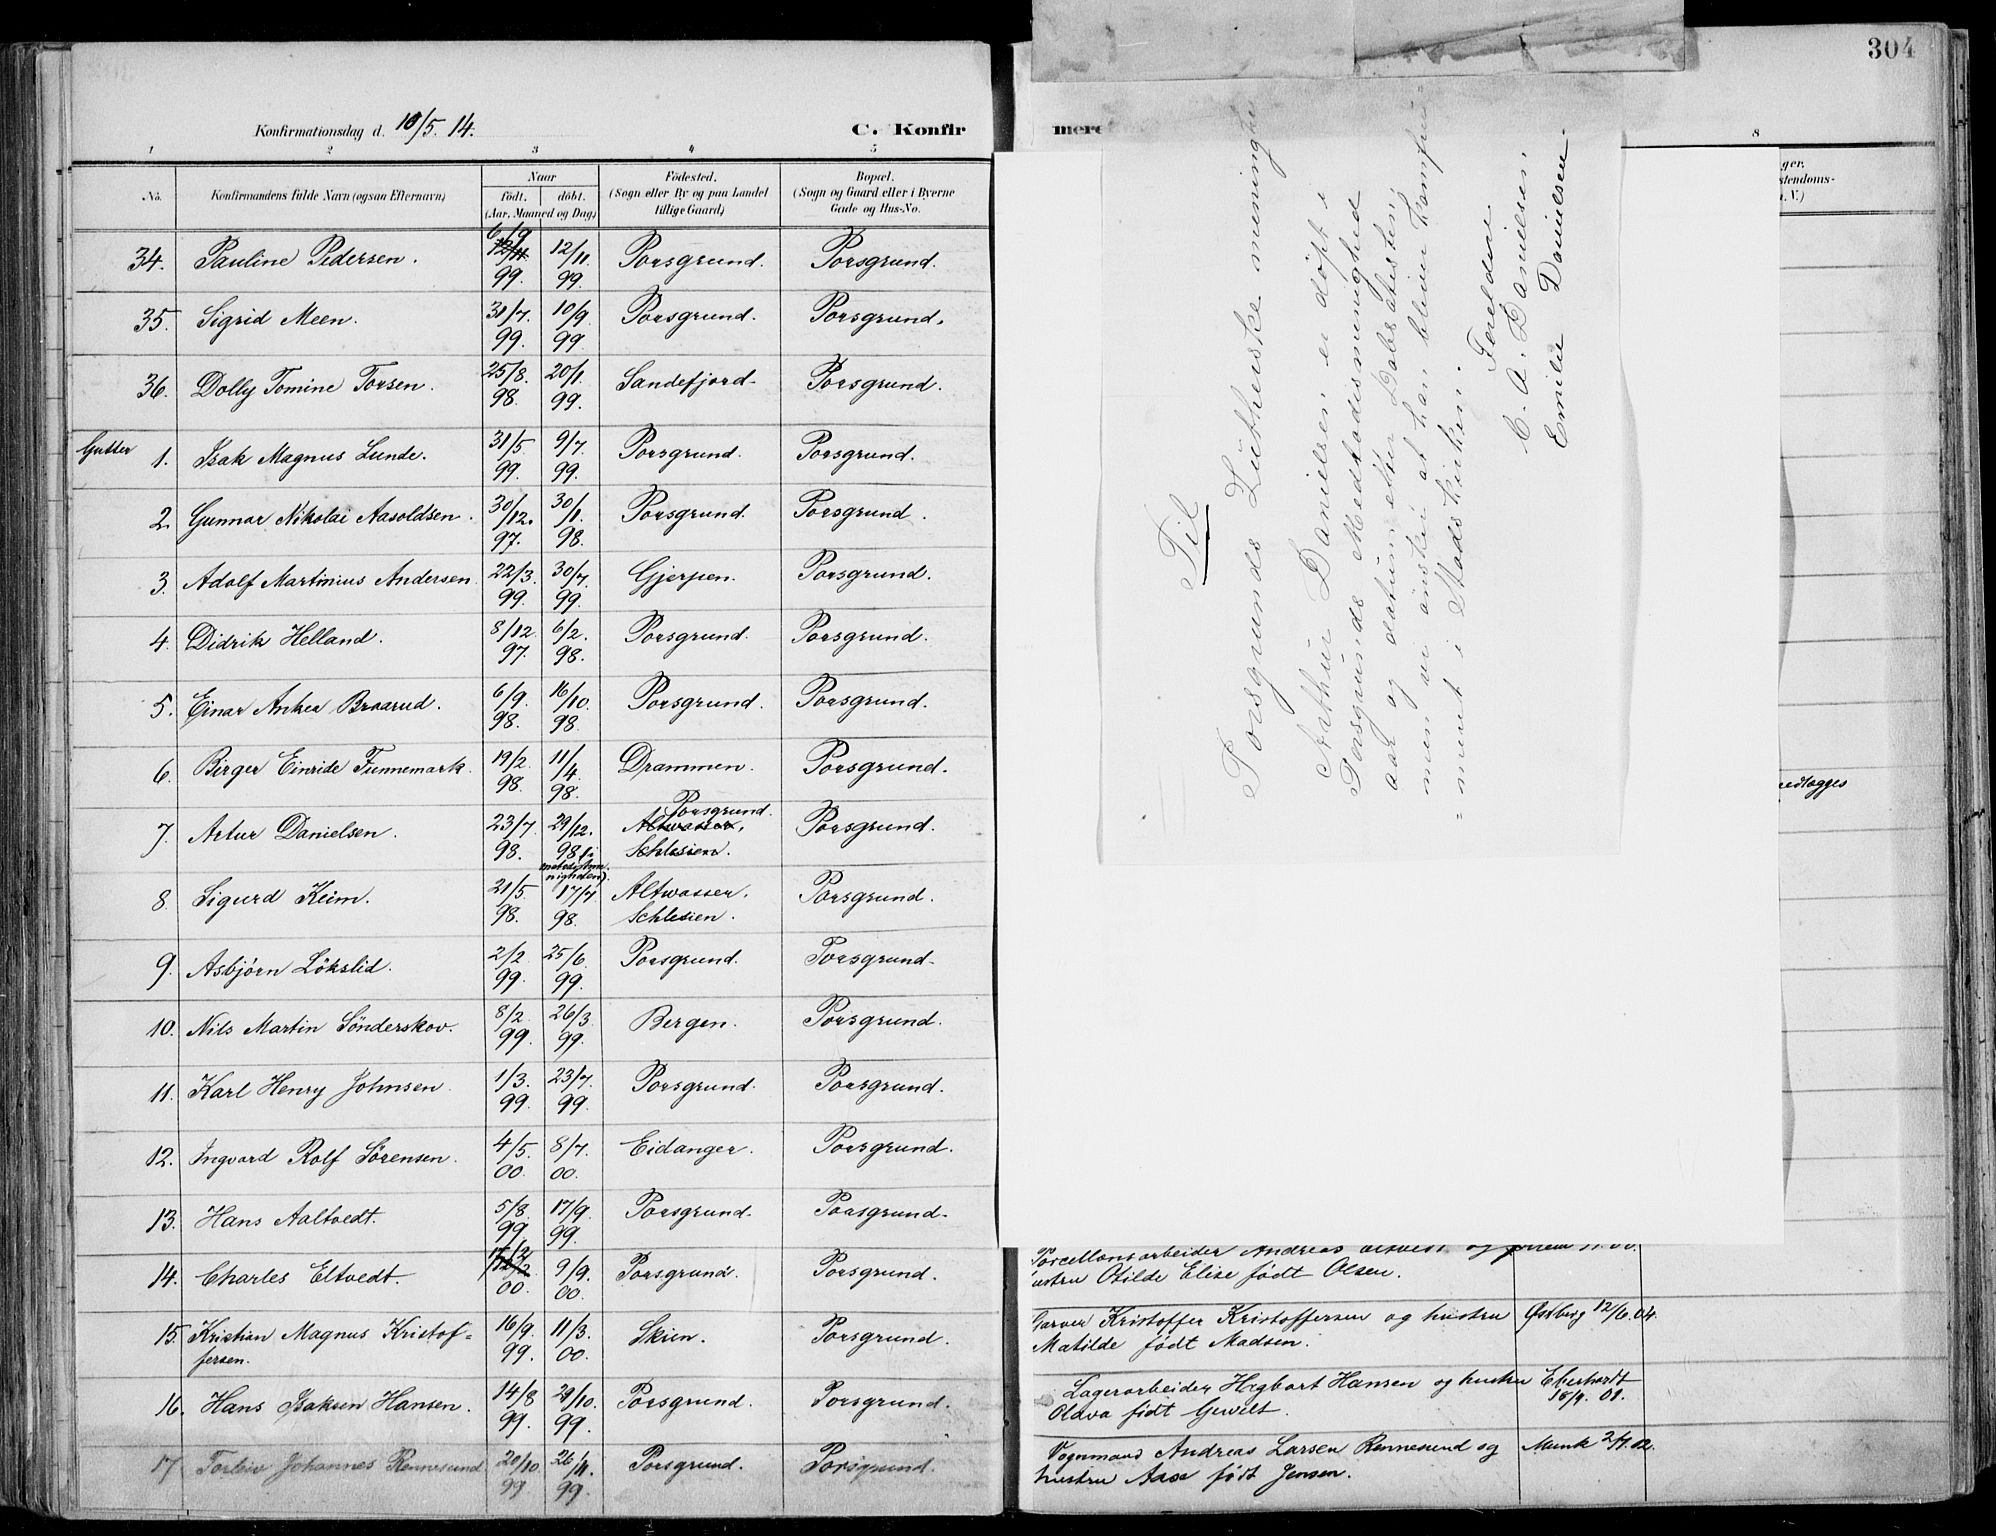 304
Konfirmationsdag d. 10/5. 14.
C. Konfir
1 2 3 4 5
8
No. Konfirmandens fulde Navn (ogsaa Efternavn) Naar født. døbt. (Aar, Maaned og Dag) Fødested. (Sogn eller By og paa Landet tillige Gaard) Bopæl. (Sogn og Gaard eller i Byerne Gade og Hus-No.
34. Pauline Pedersen. 6/9 12/11 99. 12/11 99. Porsgrund. Porsgrund.
35. Sigrid Meen. 31/7. 99. 10/9 99 Porsgrund. Porsgrund.
36. Dolly Tomine Torsen. 25/8. 98. 20/1. 99. Sandefjord. Porsgrund.
Gutter 1. Isak Magnus Lunde. 31/5 99. 9/7 99. Porsgrund. Porsgrund.
2. Gunnar Nikolai Aasoldsen. 30/12. 97. 30/1. 98. Porsgrund. Porsgrund.
3. Adolf Martinius Andersen. 22/3. 99. 30/7 99. Gjerpen. Porsgrund.
4. Didrik Helland. 8/12. 97. 6/2. 98. Porsgrund. Porsgrund.
5. Einar Anker Braarud. 6/9. 98. 16/10. 98. Porsgrund. Porsgrund.
6. Birger Einride Funnemark. 19/2. 98. 11/4 98. Drammen. Porsgrund.
7. Artur Danielsen. 23/7 98. 29/12. 98 Porsgrund. Altwasser, Schlesien. Porsgrund.
8. Sigurd Keim. 21/5 98. 17/7 98. Altwasser. Schlesien. Porsgrund.
9. Asbjørn Løkslid. 2/2 99. 25/6. 99. Porsgrund. Porsgrund.
10. Nils Martin Sønderskov. 8/2 99. 26/3 99. Bergen. Porsgrund.
11. Karl Henry Johnsen. 1/3. 99. 23/7. 99. Porsgrund. Porsgrund.
12. Ingvard Rolf Sørensen. 4/5. 00. 8/7. 00. Eidanger. Porsgrund.
13. Hans Aaltvedt. 5/8. 99. 17/9. 99. Porsgrund. Porsgrund.
14. Charles Eltvedt. 00. 9/9. 00. Porsgrund. Porsgrund.
15. Kristian Magnus Kristof-
fersen. 16/9. 99. 11/3. 00. Skien. Porsgrund.
16. Hans Isaksen Hansen. 14/8 99. 29/10. 99. Porsgrund. Porsgrund.
17 Torleiv Johannes Rennesund 20/10. 99 26/11. 99. Porsgrund. Porsgrund.
Til
Porsgrunds Lutherske menninghed
Arthur Danielsen er døpt i
Porsgrunds Methodistmenighed
aar og datum efter Dabsatesten,
men vi ønsker at han bliver komfir=
=meret i Stadskirken.
Foreldre.
C. A. Danielsen.
Emilie Danielsen
redlægges
Porcellænsarbeider Andreas
hustru Otilde Elise født Olsen.
Garver Kristoffer Kristoffersen og hustru Østberg 12/6. 04.
Matilde født Madsen.
Lagerarbeider Hegbart Hansen og hustru Eberhardt
Olava født Gewelt. 01.
Vognmand Andreas Larsen Rennesund og Munk
hustru Aase født Jensen.